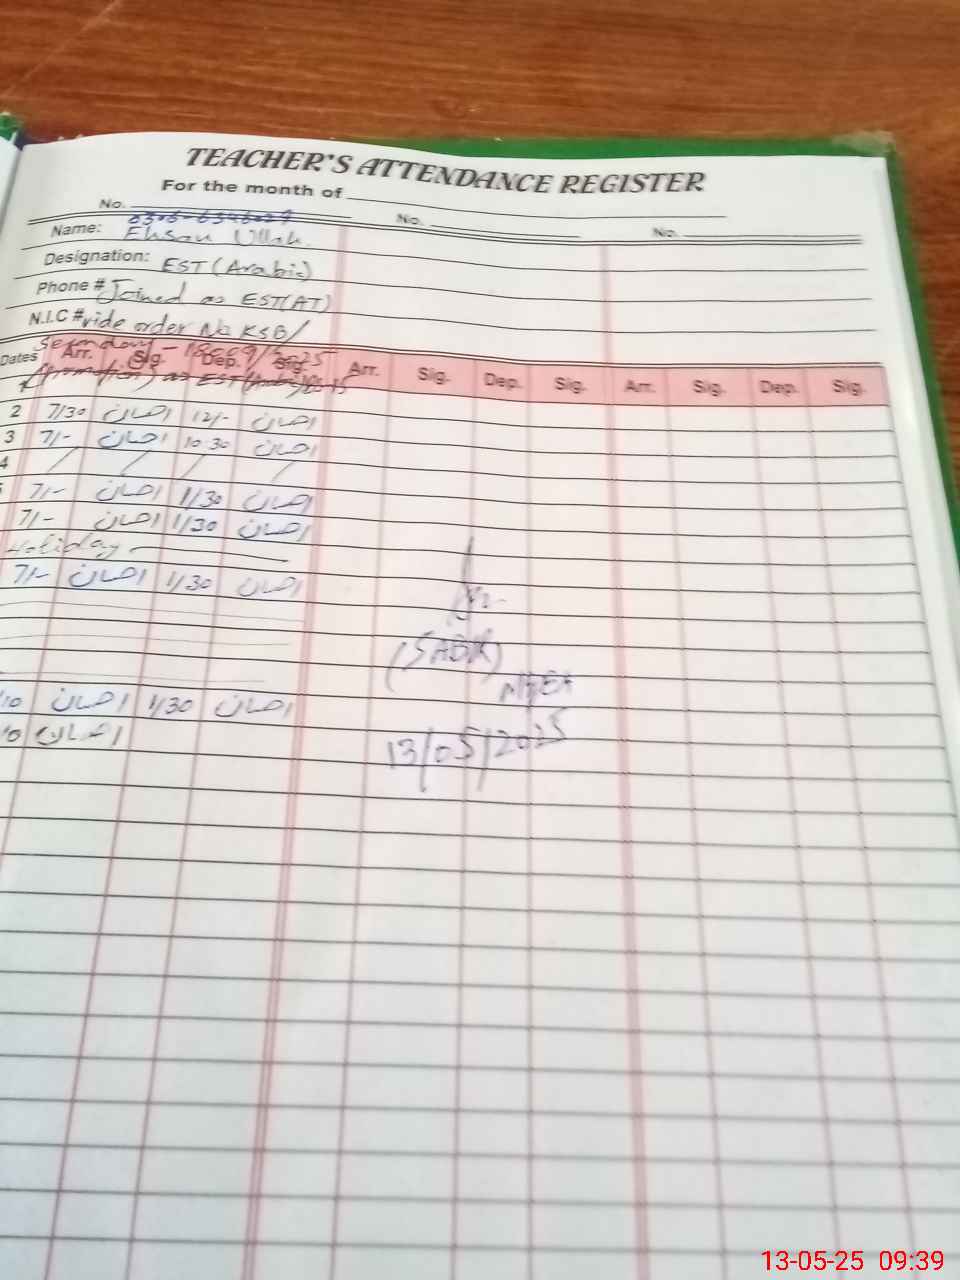 TEACHER'S ATTENDANCE REGISTER
For the month of
No. No. No.
Name: Ehsan Ullah.
Designation: EST (Arabic)
Phone # Joined as EST(AT)
N.I.C # vide order No KSB/
Secondary - /2025
Dates Arr. Sig. Dep. Sig. Arr. Sig. Dep. Sig. Arr. Sig. Dep. Sig.
(Promotion) as EST
2 7/30 احسان 12/- احسان
3 7/- احسان 10:30 احسان
4 / / / /
7/- احسان 1/30 احسان
7/- احسان 1/30 احسان
Holiday
7/- احسان 1/30 احسان
(SABIR)
/10 احسان 1/30 احسان
احسان
13/05/2025
13-05-25 09:39